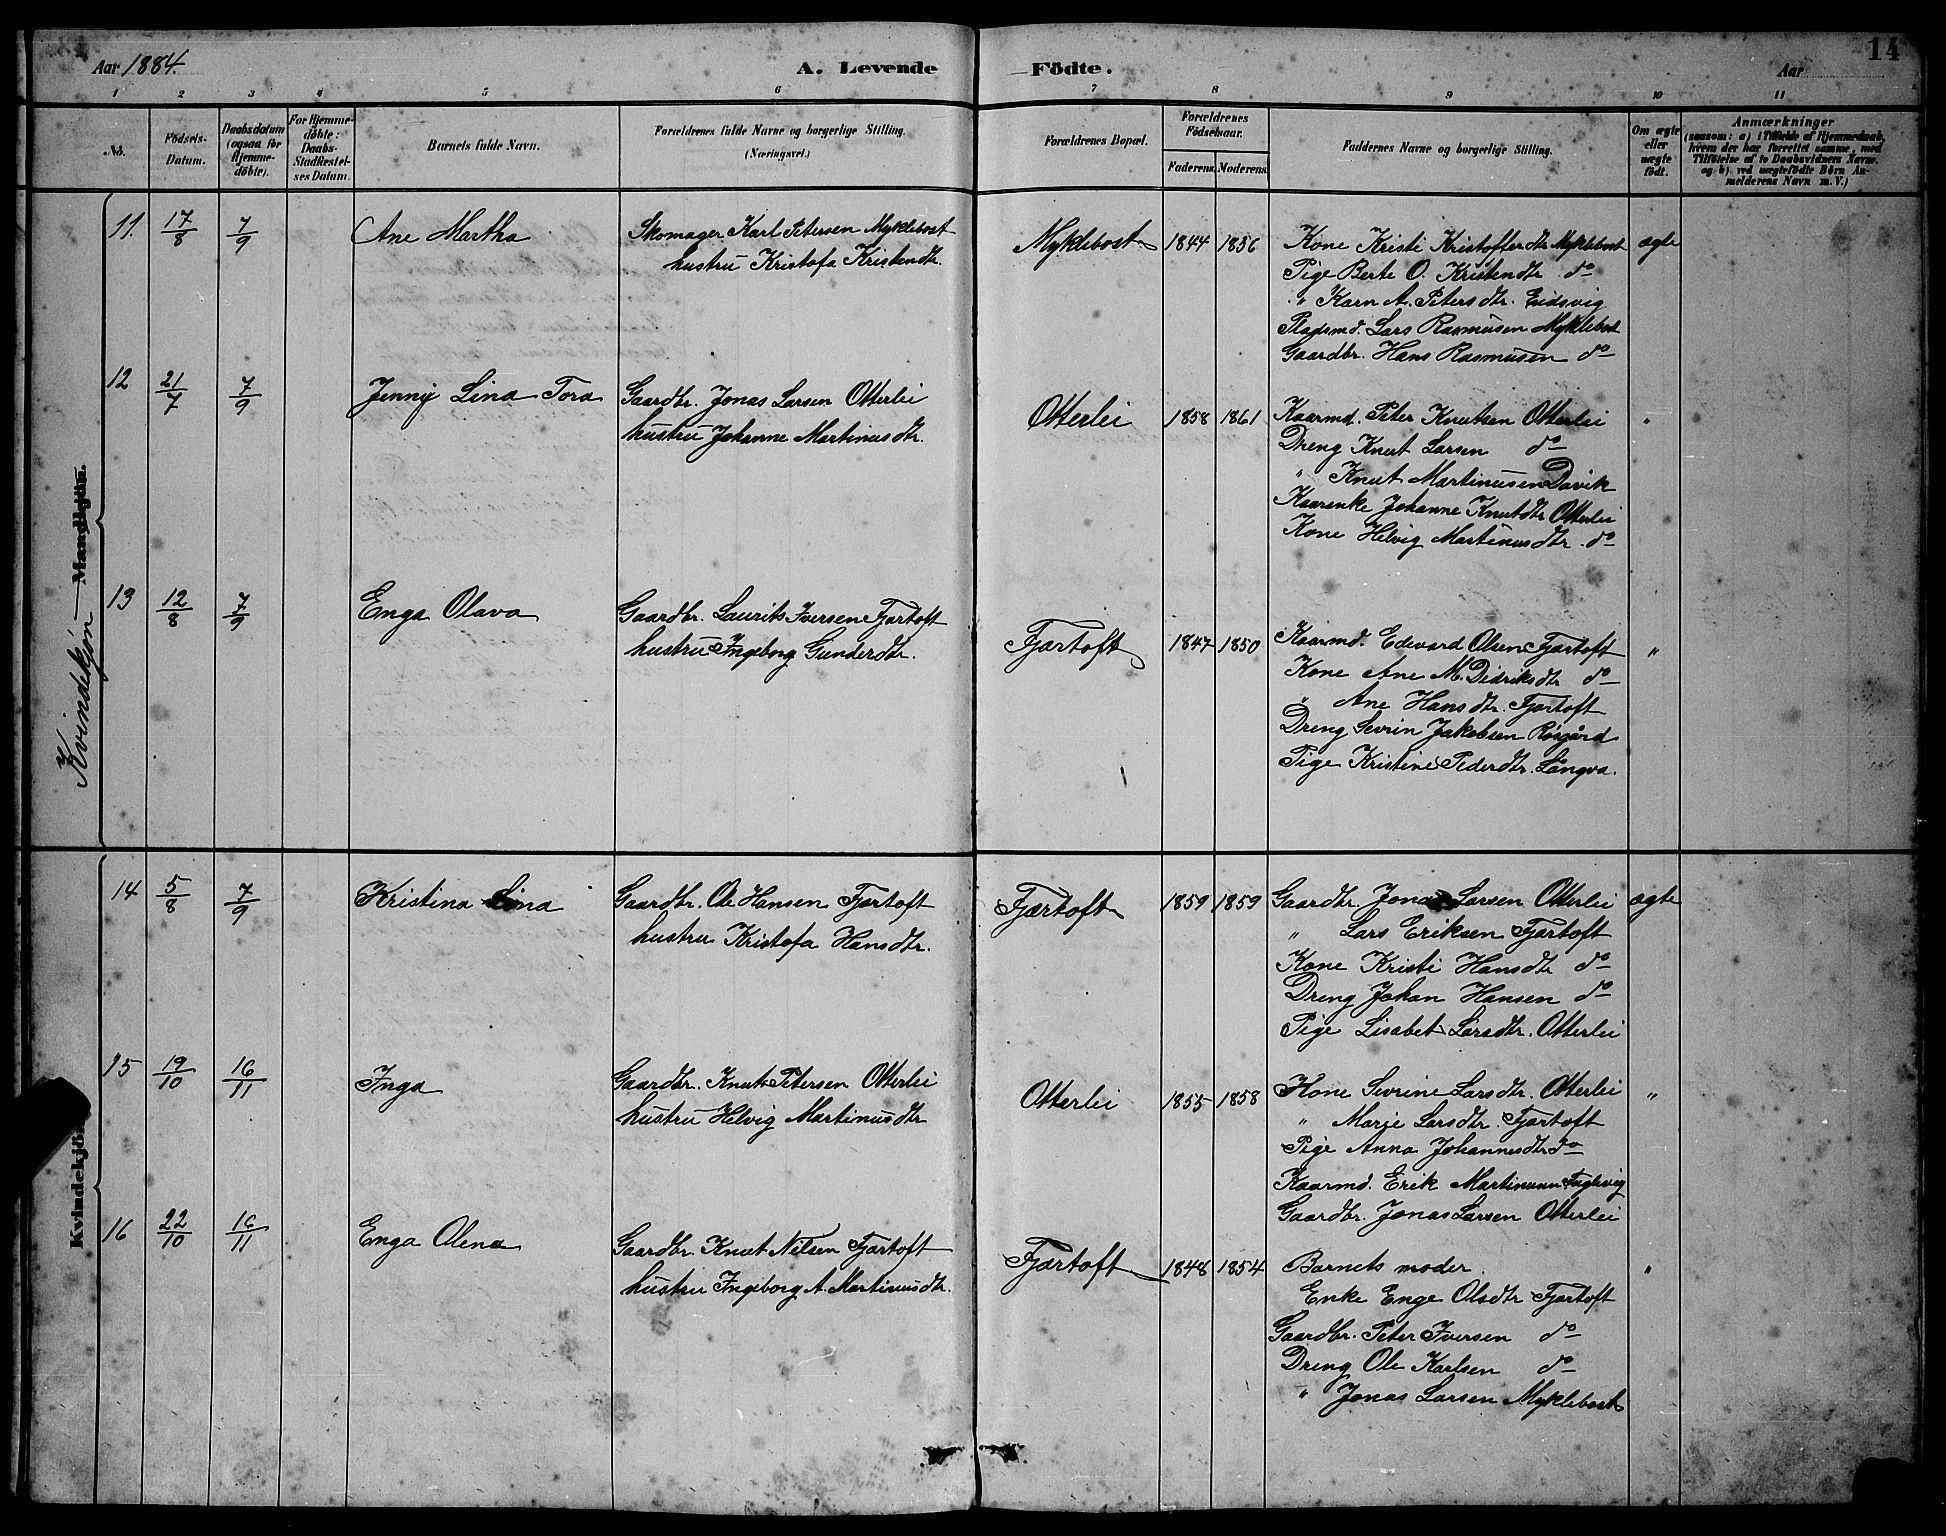 Aar 1884. A. Levende Födte. Aar 14
1 2 3 4 5 6 7 8 9 10 11
No.
Födsels-
Datum.
Daabsdatum
(ogsaa for
Hjemme-
döbte).
For Hjemme-
döbte:
Daabs-
Stadfæstel-
ses Datum.
Barnets fulde Navn.
Forældrenes fulde Navne og borgerlige Stilling.
(Næringsvei.)
Forældrenes Bopæl.
Forældrenes
Födselsaar.
Faderens. Moderens.
Faddernes Navne og borgerlige Stilling.
Om ægte
eller
uægte
födt.
Anmærkninger
(saasom: a) i Tilfælde af Hjemmedaab,
hvem der har forrettet samme, med
Tilföielse af to Daabsvidners Navne.
og b) ved uægtefödte Börn An-
melderens Navn m. V.)
Kvindekjön Mandkjön.
11 17/8 7/9 Ane Martha
Skomager Karl Petersen Myklebost
hustru Kristofa Kristendtr.
Myklebost 1844 1856
Kone Kristi Kristofferdtr Myklebost ægte
Pige Berte O. Kristendtr do
" Karn A. Petersdtr. Eidsvig
Pladsmd. Lars Rasmusen Myklebost
Gaardbr. Hans Rasmusen do
12 21/7 7/9 Jenny Lina Tora
Gaardbr. Jonas Larsen Otterlei
hustru Johanne Martinusdtr.
Otterlei 1858 1861
Kaarmd. Peter Knutsen Otterlei "
Dreng Knut Larsen do
" Knut Martinusen Davik
Kaarenke Johanne Knutdtr Otterlei
Kone Helvig Martinusdtr. do
13 12/8 7/9 Enga Olava
Gaardbr. Laurits Iversen Fjærtoft
hustru Ingeborg Gunderdtr.
Fjærtoft 1847 1850
Kaarmd. Edevard Olsen Fjærtoft "
Kone Ane M. Didriksdtr do
" Ane Hansdtr. Fjærtoft
Dreng Sevrin Jakobsen Røsgård
Pige Kristine Pederdtr. Långva.
Kvindekjön
14 5/8 7/9 Kristina Lina
Gaardbr. Ole Hansen Fjærtoft
hustru Kristofa Hansdtr.
Fjærtoft 1859 1859
Gaardbr. Jonas Larsen Otterlei ægte
" Lars Eriksen Fjærtoft
Kone Kristi Hansdtr do
Dreng Johan Hansen do
Pige Lisabet Larsdtr. Otterlei
15 19/10 16/11 Inga
Gaardbr. Knut Petersen Otterlei
hustru Helvig Martinusdtr
Otterlei 1855 1858
Kone Sevrine Larsdtr. Otterlei "
" Marje Larsdtr. Fjærtoft
Pige Anna Johannesdtr do
Kaarmd. Erik Martinusen Fuglevig
Gaardbr. Jonas Larsen Otterlei
16 22/10 16/11 Enga Olena
Gaardbr. Knut Nilsen Fjærtoft
hustru Ingeborg A. Martinusdtr.
Fjærtoft 1848 1854
Barnets moder. "
Enke Enge Olsdtr Fjærtoft
Gaardbr. Peter Iversen do
Dreng Ole Karlsen do
" Jonas Larsen Myklebost